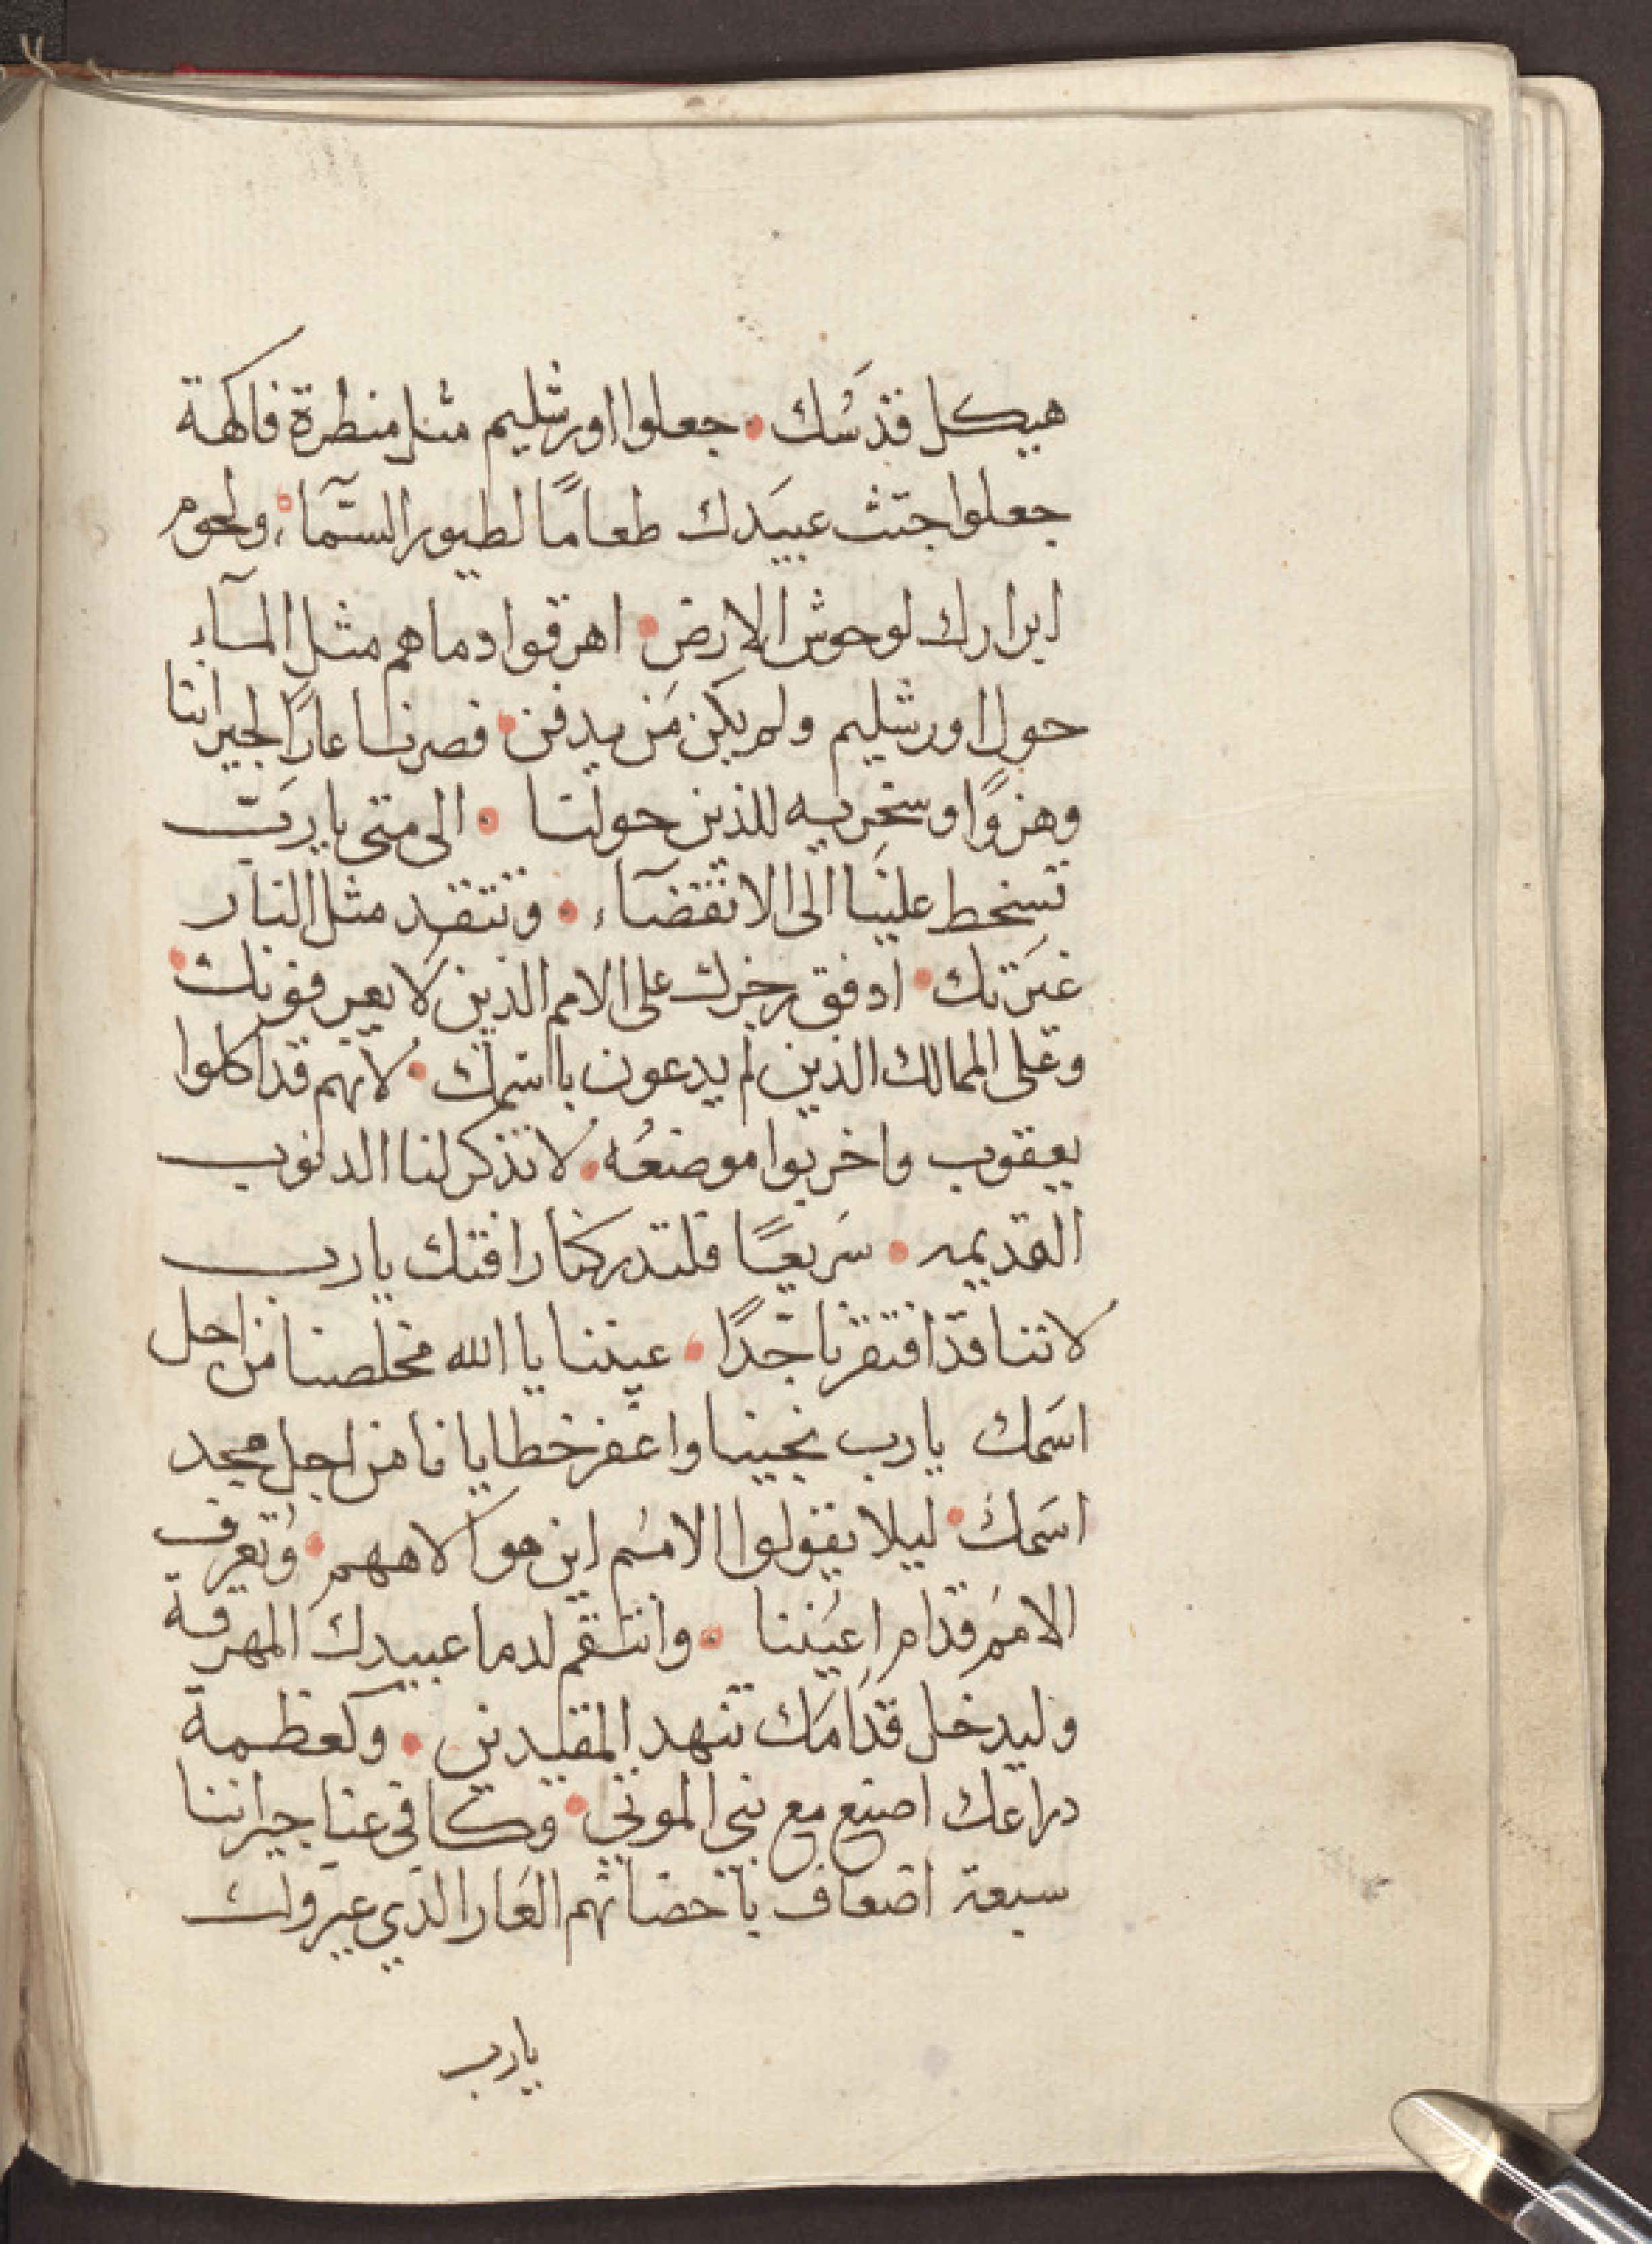 هيكل قدسك • جعلوا اورشليم مثل منطرة فاكهة
جعلوا جثث عبيدك طعامًا لطيور السمآء • ولحوم
ابرارك لوحوش الارض • اهرقوا دماهم مثل المآء
حول اورشليم ولم يكن من يدفن • فصرنا عارًا لجيراننا
وهزوًا وسخريه للذين حولنا • الى متى يا رب
تسخط علينا الى الانقضآء • وتتقد مثل النار
غيرتك • ادفق رجزك على الامم الذين لا يعرفونك •
وعلى الممالك الذين لم يدعون باسمك • لانهم قد اكلوا
يعقوب واخربوا موضعُه • لا تذكر لنا الدنوب
القديمه • سريعًا فلتدركنا رافتك يا رب
لاننا قد افتقرنا جدًا • عيننا يا الله مخلصنا من اجل
اسمك يا رب نجينا واغفر خطايانا من اجل مجد
اسمك • ليلا يقولوا الامم اين هو الاههم • وتُعرف
الامم قدام اعيننا • وانتقم لدما عبيدك المهرقة
وليدخل قدامك تنهد المقيدين • وكعظمة
دراعك اصنع مع بني الموتي • وكافي عنا جيراننا
سبعة اضعاف باحضانهم العار الدي عيروك
يا رب